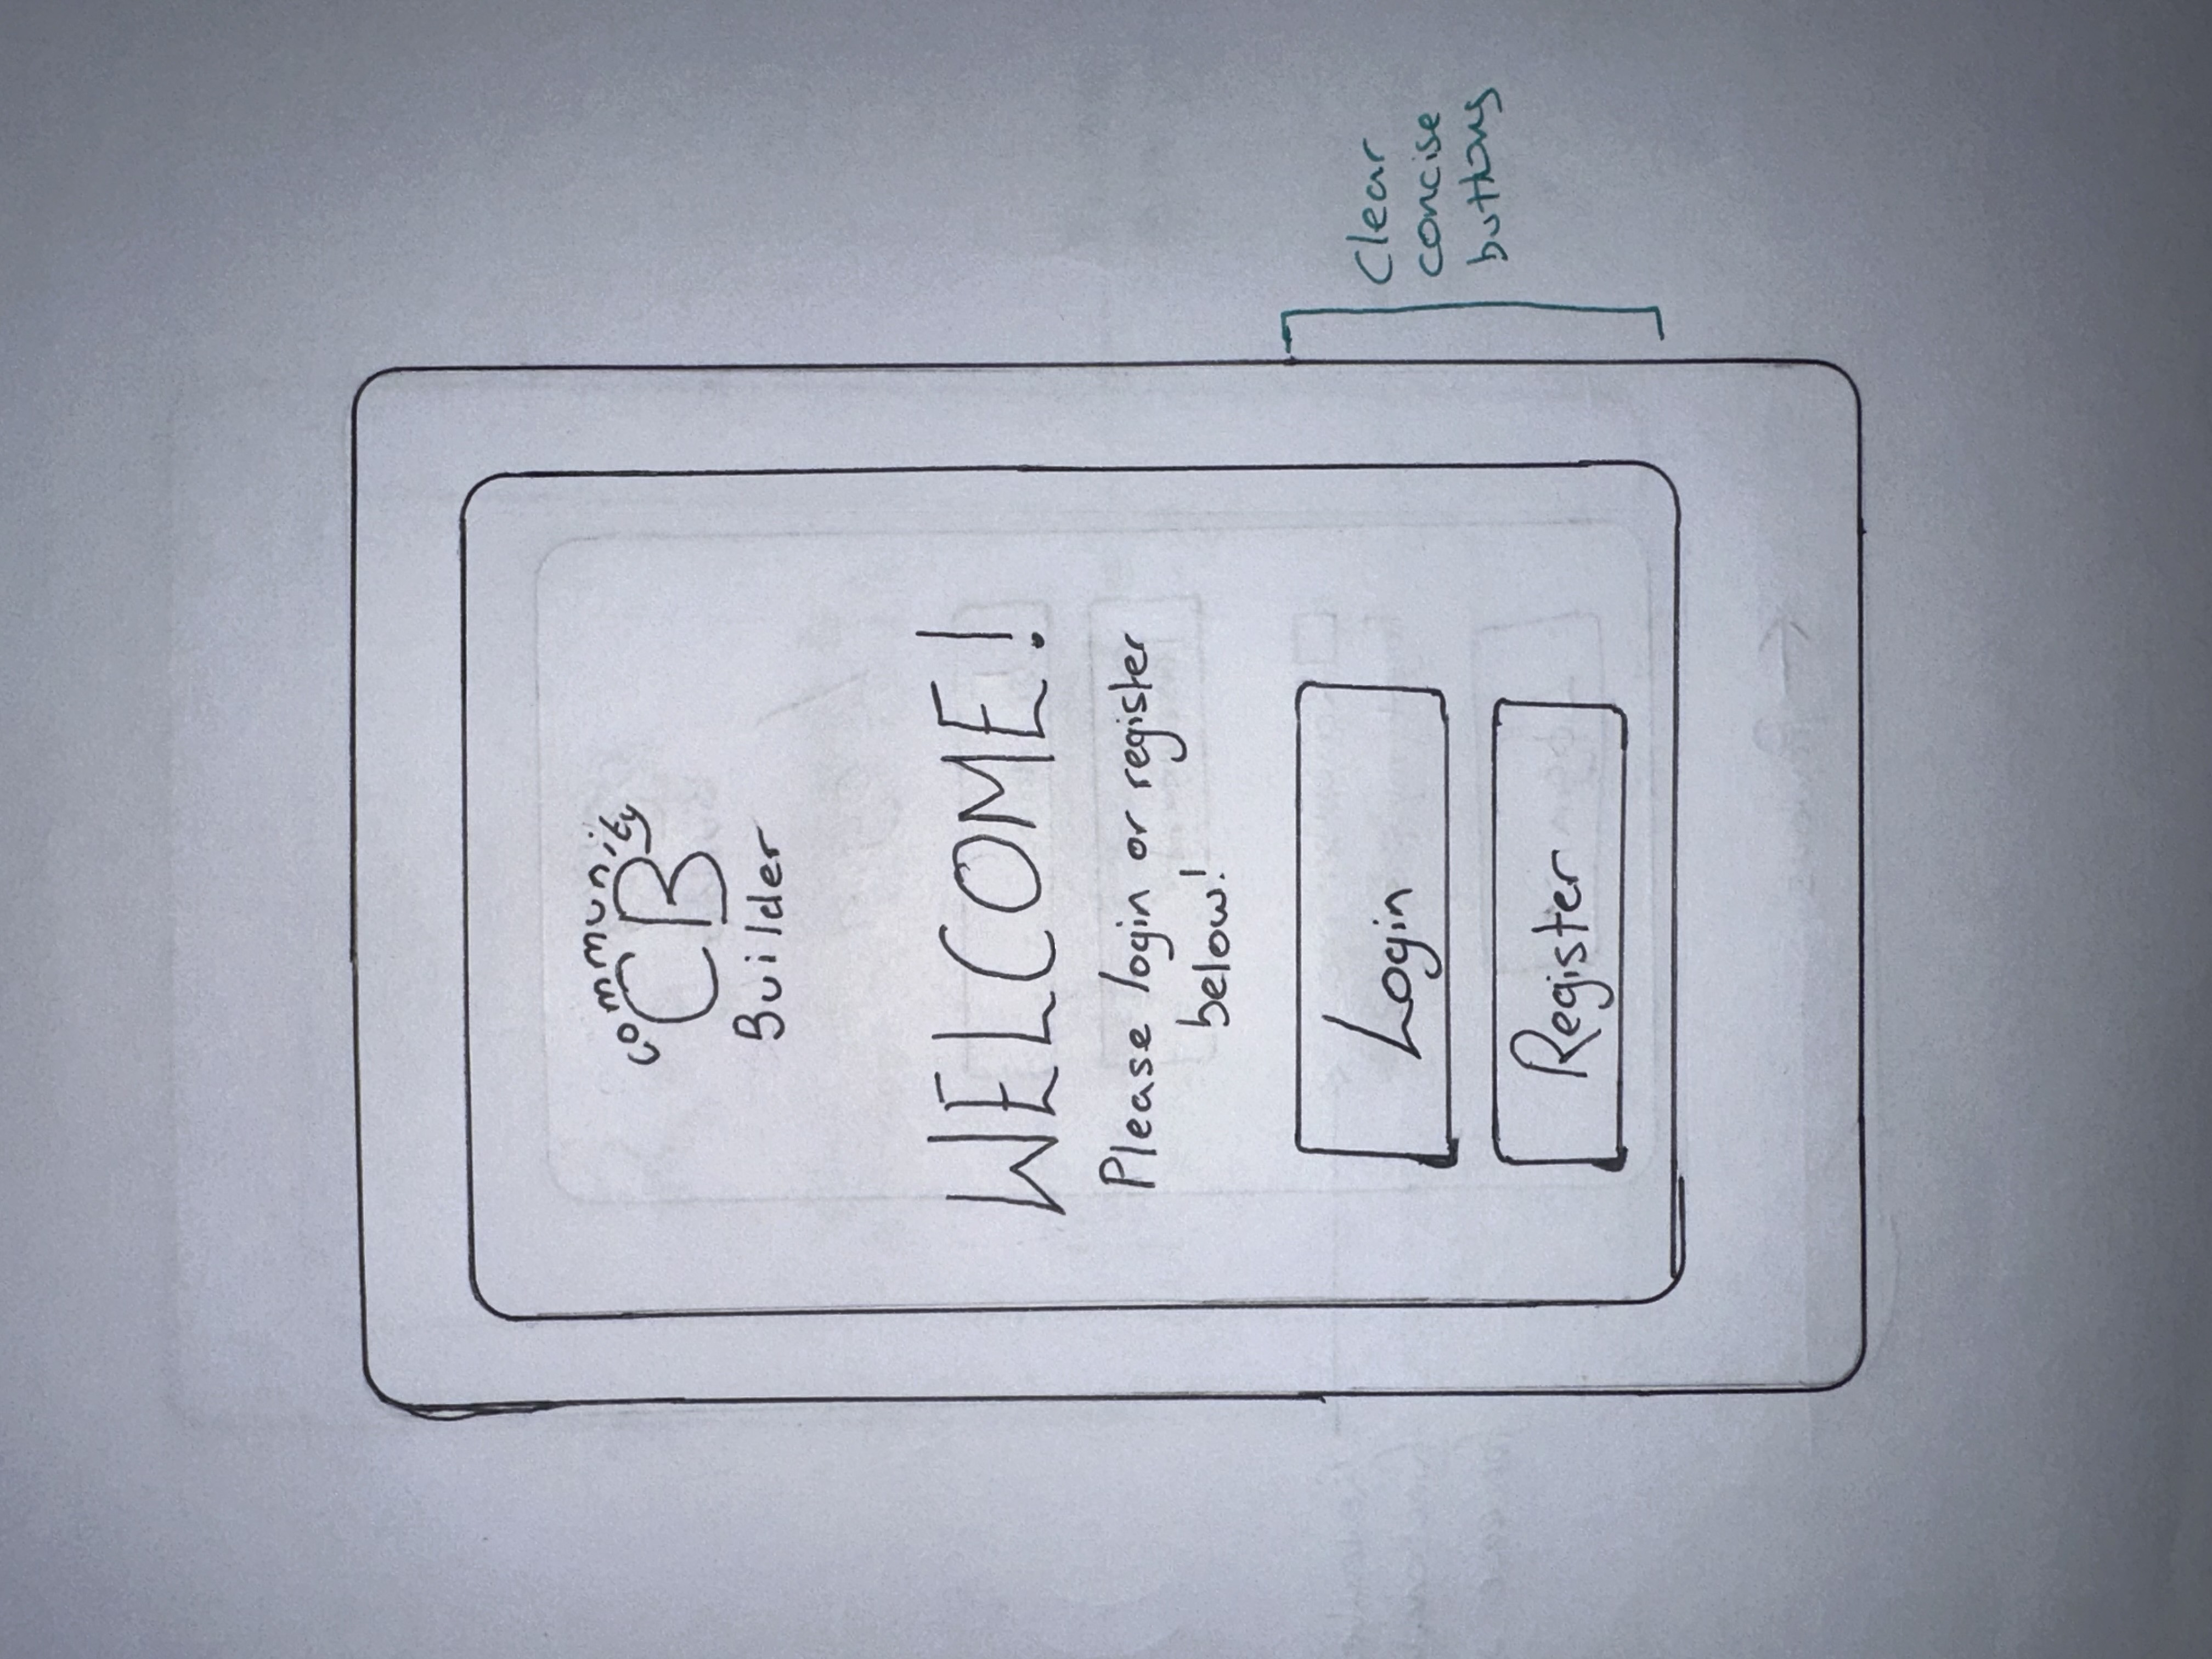 Community
CB
Builder
WELCOME!
Please login or register
below!
Login
Register
Clear
concise
buttons